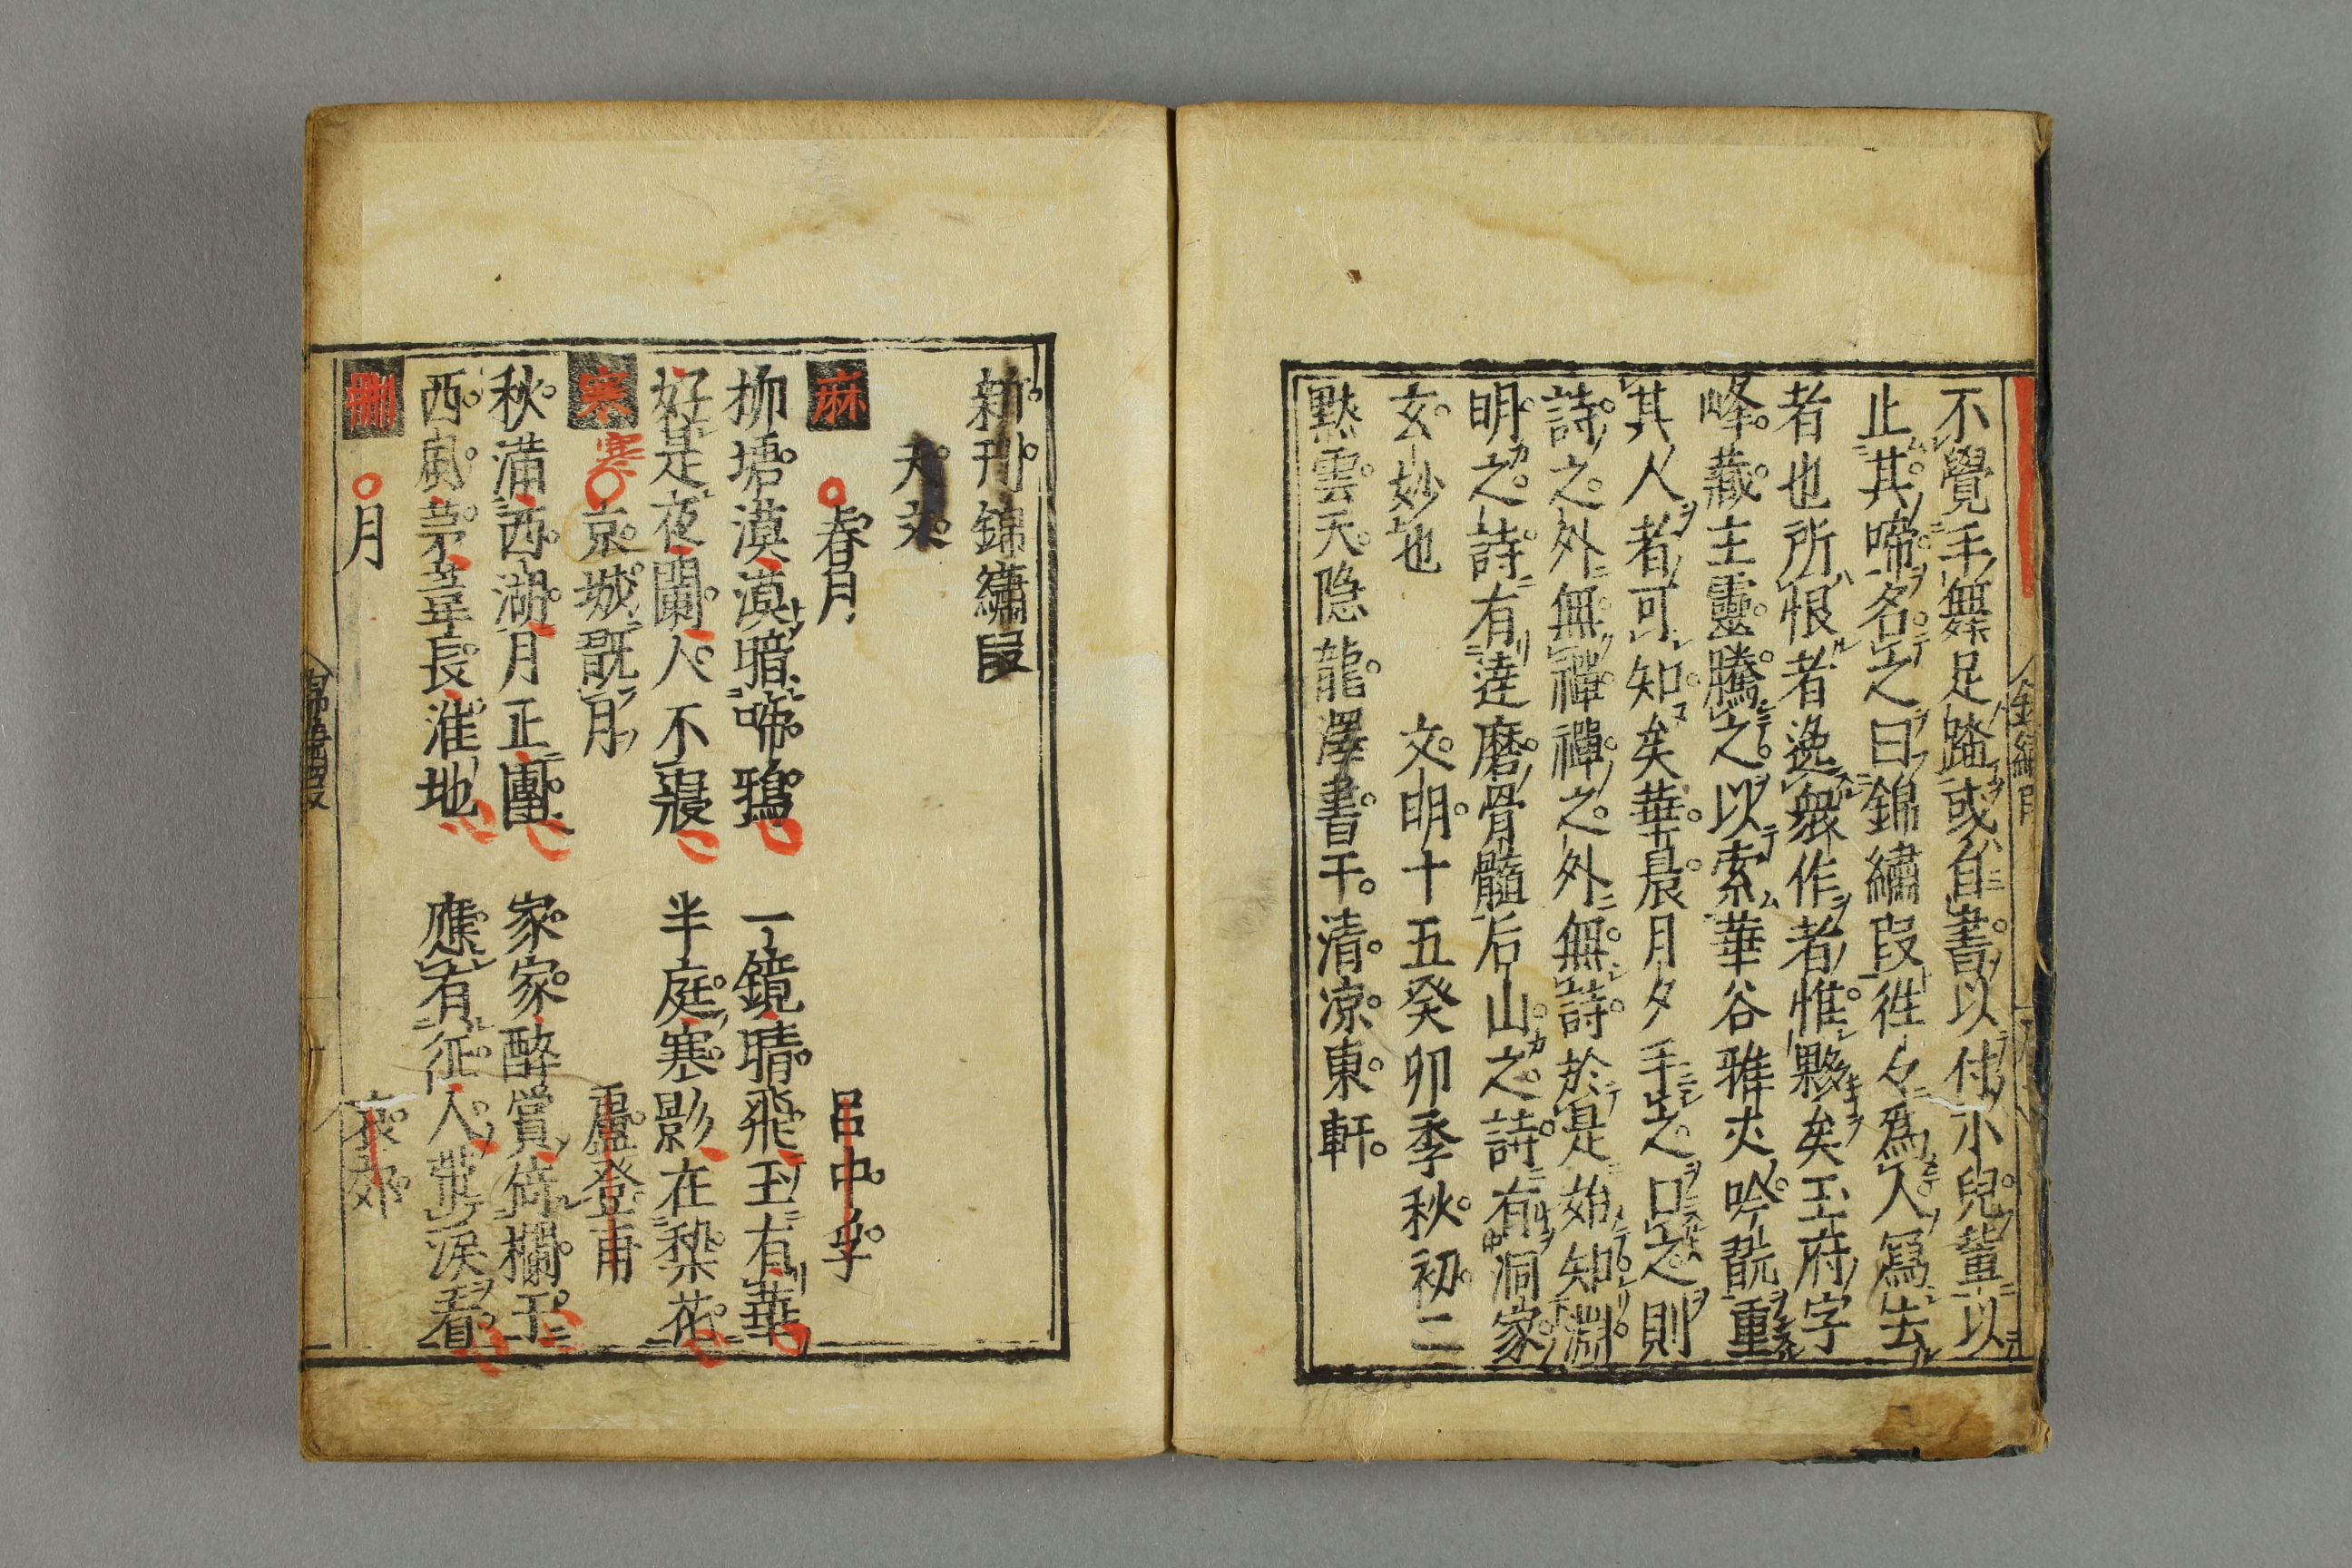 不覺手舞足蹈或自書以付小兒輩以
止其啼名之曰錦繡段徃々爲人爲去
者也所恨者逸衆作者惟夥矣玉府字
峰藏主靈騰之以索華谷雅丈吟翫重
其人者可知矣華晨月夕手之口之則
詩之外無禪禪之外無詩於是始知淵
明之詩有達磨骨髓后山之詩有洞家
玄妙也
文明十五癸卯季秋初二
默雲天隐龍澤書于清凉東軒
新刊錦繡段
天文
麻 春月 呂中孚
柳塘漠漠暗啼鴉 一鏡晴飛玉有華
好是夜闌人不寢 半庭寒影在梨花
寒 寒 京城翫月 盧登甫
秋滿西湖月正團 家家醉賞倚欄干
西風茅葦長淮地 應有征人帶淚看
刪 月 袁郊